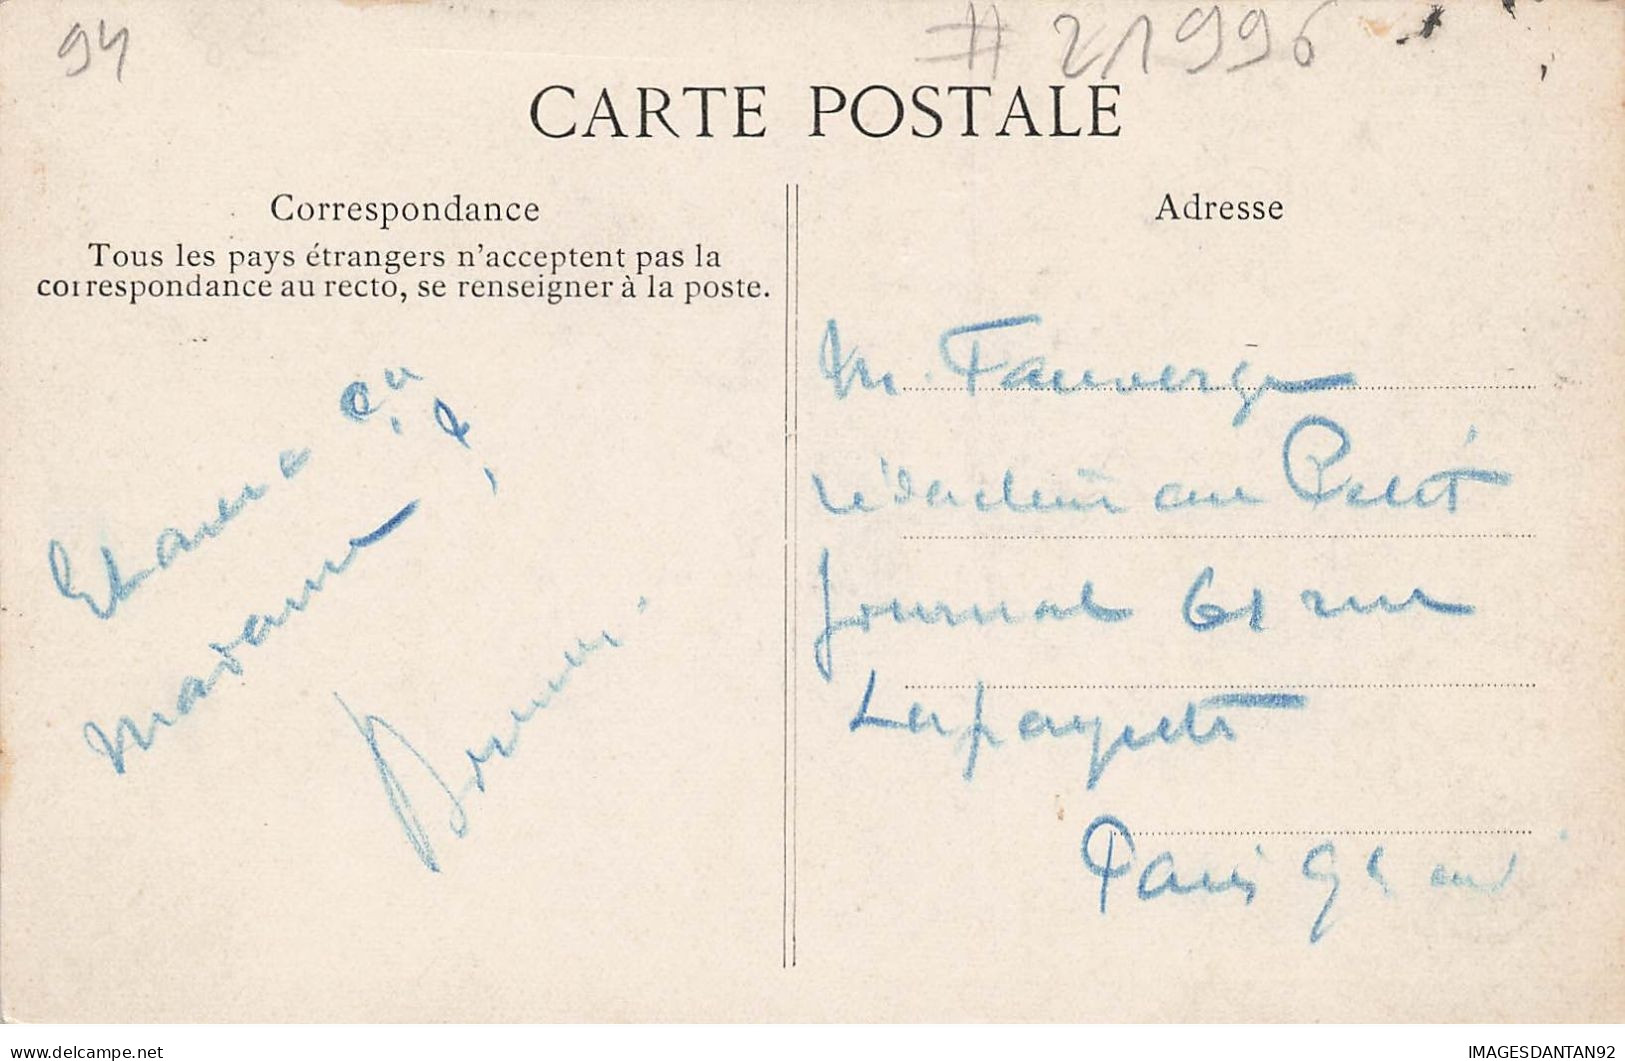 94
# 21996
CARTE POSTALE
Correspondance
Tous les pays étrangers n'acceptent pas la
correspondance au recto, se renseigner à la poste.
Adresse
M. Fauverge
rédacteur au Petit
Journal 61 rue
Lafayette
Paris 9e
Madame
IMAGESDANTAN92